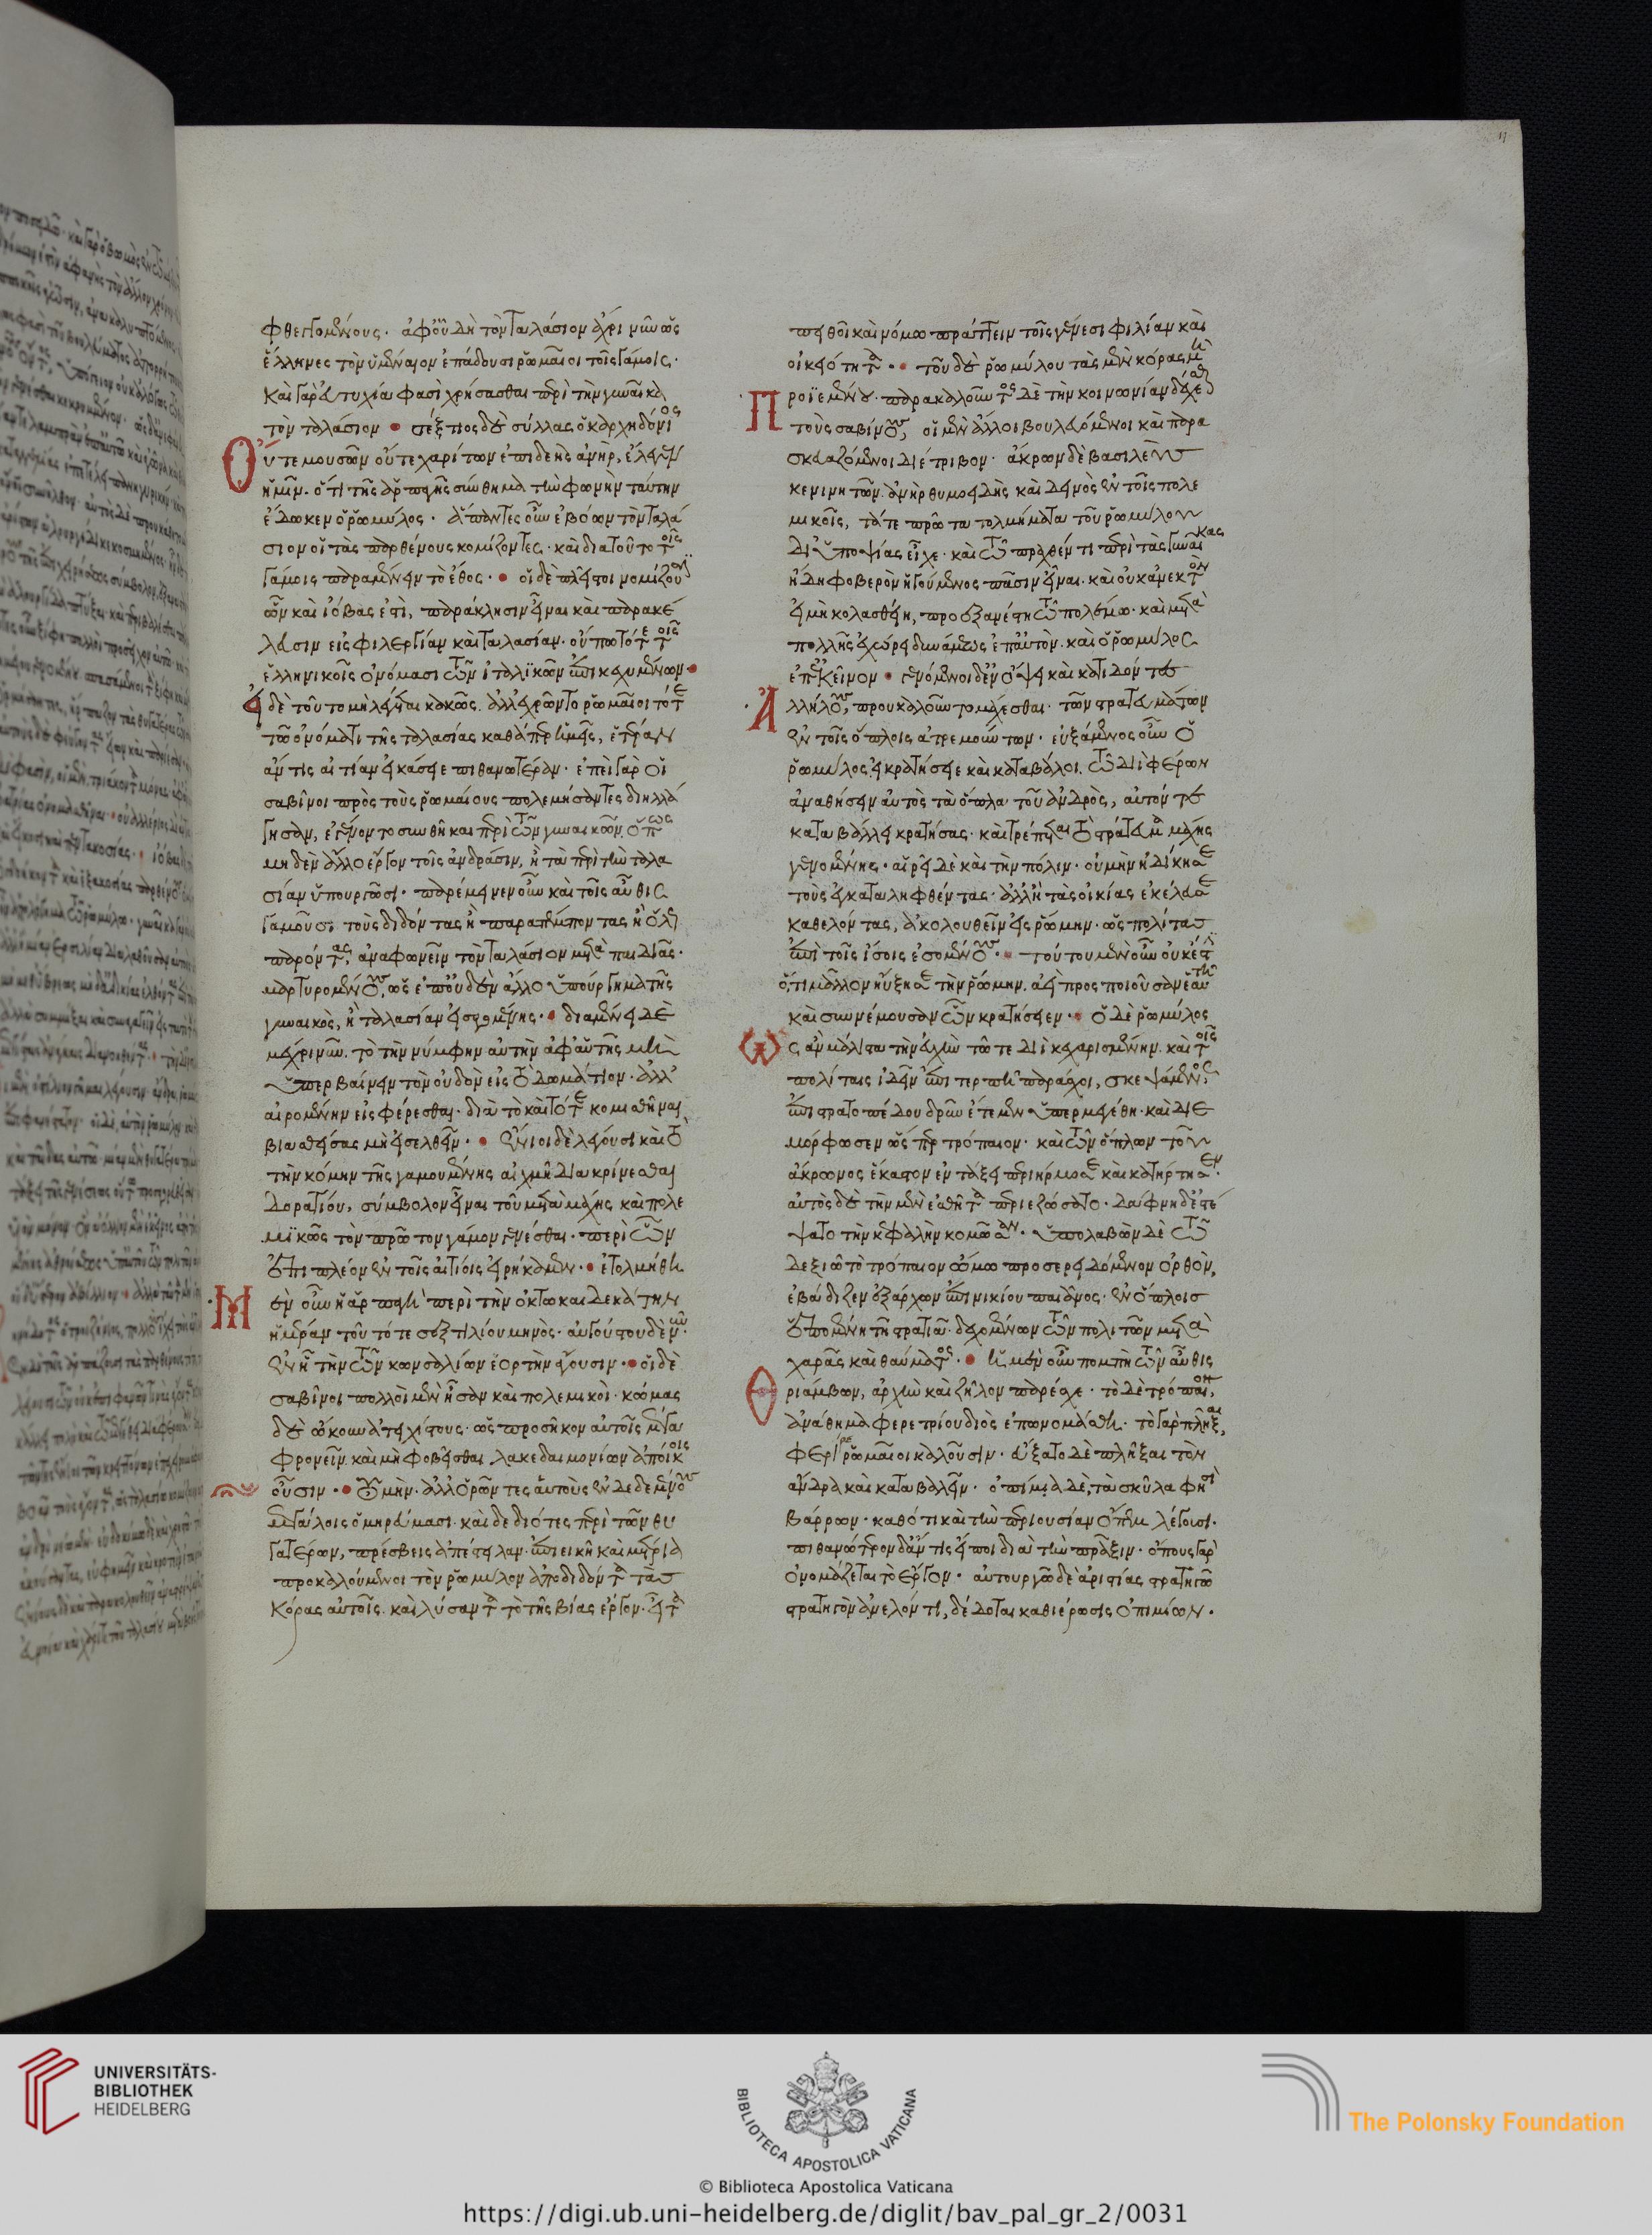 φθεγγομένους· ἀφ' οὗ δὴ τὸν ταλάσιον ἄχρι νῦν ὡς
ἕλληνες τὸν ὑμέναιον ἐπάδουσι ῥωμαῖοι τοῖς γάμοις·
καὶ γὰρ εὐτυχία φασὶ χρήσασθαι περὶ τὴν γυναῖκα
τὸν ταλάσιον • σέξτιος δὲ σύλλας ὁ καρχηδόνιος
οὔτε μουσῶν οὔτε χαρίτων ἐπιδεὴς ἀνὴρ, ἔλεγεν
ἡμῖν. ὅτι τῆς ἁρπαγῆς σύνθημα τὴν φωνὴν ταύτην
ἔδωκεν ὁ ῥωμύλος· ἅπαντες οὖν ἐβόων τὸν ταλά
σιον οἱ τὰς παρθένους κομίζοντες· καὶ διὰ τοῦτο τοῖς
γάμοις παραμένειν τὸ ἔθος· • οἱ δὲ πλεῖστοι νομίζουσιν
ὧν καὶ ἰόβας ἐστὶ, παράκλησιν εἶναι καὶ παρακέ
λευσιν εἰς φιλεργίαν καὶ ταλασίαν· οὔπω τότε τοῖς
ἑλληνικοῖς ὀνόμασι τῶν ἰταλϊκῶν ἐπικεχυμένων·•
εἰ δὲ τοῦτο μὴ λέγεται κακῶς. ἀλλ' ἐχρῶντο ῥωμαῖοι τότε
τῶ ὀνόματι τῆς ταλασίας καθάπερ ἡμεῖς, ἑτέραν
ἄν τις αἰτίαν εἰκάσειε πιθανωτέραν· ἐπεὶ γὰρ οἱ
σαβῖνοι πρὸς τοὺς ῥωμαίους πολεμήσαντες διηλλά
γησαν, ἐγένοντο συνθῆκαι περὶ τῶν γυναικῶν. ὅπως
μηδὲν ἄλλο ἔργον τοῖς ἀνδράσιν, ἢ τὰ περὶ τὴν ταλα
σίαν ὑπουργῶσι· παρέμεινεν οὖν καὶ τοῖς αὖθις
γαμοῦσι τοὺς διδόντας ἢ παραπέμποντας ἢ ὅλως
παρόντας, ἀναφωνεῖν τὸν ταλάσιον μετὰ παιδιᾶς·
μαρτυρομένους, ὡς ἐπ' οὐδὲν ἄλλο ὑπούργημα τῆς
γυναικὸς, ἢ ταλασίαν εἰσαγομένης· • διαμένει δὲ
μέχρι νῦν. τὸ τὴν νύμφην αὐτὴν ἀφ' αὑτῆς μὴ
ὑπερβαίνειν τὸν οὐδὸν εἰς τὸ δωμάτιον· ἀλλ'
αἰρομένην εἰσφέρεσθαι· διὰ τὸ καὶ τότε κομισθῆναι
βιασθείσας μὴ εἰσελθεῖν· • ἔνιοι δὲ λέγουσι καὶ τὸ
τὴν κόμην τῆς γαμουμένης αἰχμῆ διακρίνεσθαι
δορατίου, σύμβολον εἶναι τοῦ μετὰ μάχης καὶ πολε
μϊκῶς τὸν πρῶτον γάμον γενέσθαι· περὶ ὧν
ἐπιπλέον ἐν τοῖς αἰτίοις εἰρήκαμεν· • ἐτολμήθη
μὲν οὖν ἡ ἁρπαγὴ περὶ τὴν ὀκτωκαιδεκάτην
ἡμέραν τοῦ τότε σεξτιλίου μηνὸς· αὐγούστου δὲ νῦν
ἐν ᾗ τὴν τῶν κωνσαλίων ἑορτὴν ἄγουσιν·• οἱ δὲ
σαβῖνοι πολλοὶ μὲν ἦσαν καὶ πολεμικοὶ· κώμας
δὲ ᾤκουν ἀτειχίστους· ὡς προσῆκον αὐτοῖς μέγα
φρονεῖν. καὶ μὴ φοβεῖσθαι λακεδαιμονίων ἀποίκοις
οὖσιν·• οὐ μὴν ἀλλ' ὁρῶντες αὑτοὺς ἐνδεδεμένους
μεγάλοις ὁμηρεύμασι. καὶ δεδιότες περὶ τῶν θυ
γατέρων, πρέσβεις ἀπέστειλαν· ἐπιεικῆ καὶ μέτρια
προκαλούμενοι τὸν ῥωμύλον ἀποδιδόντα τὰς
κόρας αὐτοῖς. καὶ λύσαντα τὸ τῆς βίας ἔργον· εἶτα
πειθοῖ καὶ νόμω πράττειν τοῖς γένεσι φιλίαν καὶ
οἰκειότητα·• τοῦ δὲ ῥωμύλου τὰς μὲν κόρας μὴ
προϊεμένου· παρακαλοῦντος δὲ τὴν κοινωνίαν δέχεσθαι
τοὺς σαβίνους, οἱ μὲν ἄλλοι βουλευόμενοι καὶ παρα
σκευαζόμενοι διέτριβον· ἄκρων δὲ βασιλεὺς
κενινητῶν. ἀνὴρ θυμοειδὴς καὶ δεινὸς ἐν τοῖς πολε
μικοῖς, τά τε πρῶτα τολμήματα τοῦ ῥωμύλου
δι' ὑποψίας εἶχε· καὶ τῶ πραχθέντι περὶ τὰς γυναῖκας
ἤδη φοβερὸν ἡγούμενος πᾶσιν εἶναι. καὶ οὐκ ἀνεκτὸν
εἰ μὴ κολασθείη, προεξανέστη τῶ πολέμω· καὶ μετὰ
πολλῆς ἐχώρει δυνάμεως ἐπ' αὐτὸν. καὶ ὁ ῥωμύλος
ἐπ' ἐκεῖνον • γενόμενοι δ' ἐν ὄψει καὶ κατιδόντες
ἀλλήλους, προυκαλοῦντο μάχεσθαι· τῶν στρατευμάτων
ἐν τοῖς ὅπλοις ἀτρεμούντων· εὐξάμενος οὖν ὁ
ῥωμύλος, εἰ κρατήσειε καὶ καταβάλοι. τῶ διὶ φέρων
ἀναθήσειν αὐτὸς τὰ ὅπλα τοῦ ἀνδρὸς, αὐτόν τε
καταβάλλει κρατήσας· καὶ τρέπεται τὸ στράτευμα μάχης
γενομένης· αἱρεῖ δὲ καὶ τὴν πόλιν· οὐ μὴν ἠδίκησε
τοὺς ἐγκαταληφθέντας· ἀλλ' ἢ τὰς οἰκίας ἐκέλευσε
καθελόντας, ἀκολουθεῖν εἰς ῥώμην· ὡς πολίτας
ἐπὶ τοῖς ἴσοις ἐσομένους·• τούτου μὲν οὖν οὐκ ἔστιν
ὅ,τι μᾶλλον ηὔξησε τὴν ῥώμην. ἀεὶ προσποιοῦσαν ἑαυτῆ
καὶ συννέμουσαν ὧν κρατήσειεν·• ὁ δὲ ῥωμύλος
ὡς ἂν μάλιστα τὴν εὐχὴν τῶ τε διὶ κεχαρισμένην. καὶ τοῖς
πολίταις ἰδεῖν ἐπιτερπῆ παράσχοι, σκεψάμενος
ἐπὶ στρατοπέδου δρῦν ἔτεμεν ὑπερμεγέθη· καὶ διε
μόρφωσεν ὥσπερ τρόπαιον· καὶ τῶν ὅπλων τοῦ
ἄκρωνος ἕκαστον ἐν τάξει περιήρμοσε καὶ κατήρτησεν·
αὐτὸς δὲ τὴν μὲν ἐσθῆτα περιεζώσατο· δάφνη δ' ἐστέ
ψατο τὴν κεφαλὴν κομῶσαν· ὑπολαβὼν δὲ τῶ
δεξιῶ τὸ τρόπαιον ὤμω προσερειδόμενον ὀρθὸν,
ἐβάδιζεν ἐξάρχων ἐπινικίου παιᾶνος· ἐν ὅπλοις
ἑπομένη τῆ στρατιᾶ· δεχομένων τῶν πολιτῶν μετὰ
χαρᾶς καὶ θαύματος·• ἡ μὲν οὖν πομπὴ τῶν αὖθις
θριάμβων, ἀρχὴν καὶ ζῆλον παρέσχε· τὸ δὲ τρόπαιον,
ἀνάθημα φερετρίου διὸς ἐπωνομάσθη· τὸ γὰρ πλῆξαι,
φερῖρε ῥωμαῖοι καλοῦσιν· εὔξατο δὲ πλῆξαι τὸν
ἄνδρα καὶ καταβαλεῖν· ὀπίμια δὲ, τὰ σκῦλα φησὶ
βάρρων· καθότι καὶ τὴν περιουσίαν ὄπεμ λέγουσι·
πιθανώτερον δ' ἄν τις εἴποι διὰ τὴν πρᾶξιν· ὄπους γὰρ
ὀνομάζεται τὸ ἔργον· αὐτουργῶ δὲ ἀριστίας στρατηγῶ
στρατηγὸν ἀνελόντι, δέδοται καθιέρωσις ὀπιμίων.
UNIVERSITÄTS-
BIBLIOTHEK
HEIDELBERG
BIBLIOTECA APOSTOLICA VATICANA
The Polonsky Foundation
© Biblioteca Apostolica Vaticana
https://digi.ub.uni-heidelberg.de/diglit/bav_pal_gr_2/0031